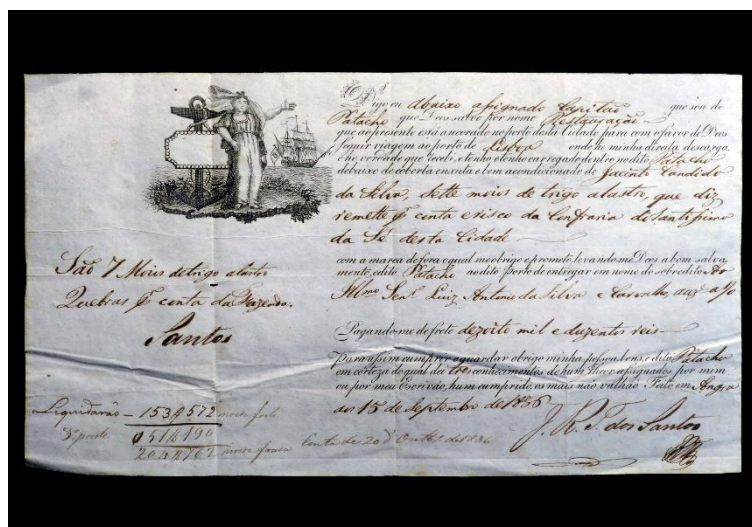 Digo eu Abaixo asignado Capitão que sou do
Patacho que Deos salve por nome Restauração
que ao presente está ancorado no porto desta Cidade para com o favor de Deos
seguir viagem ao porto de Lisboa onde he minha direita descarga
e he verdade que recebi, e tenho carregado dentro no dito Patacho
debaixo de coberta enxuta e bem acondicionado de Jacinto Candido
da Silva, sette moios de trigo alastro, que diz
remette p conta e risco da Confraria do Santissimo
da Sé desta Cidade
com a marca de fora e qual me obrigo e prometo, levando-me Deos a bom salva
mento, e dito Patacho ao dito porto de entregar em nome do sobredito Ao
Illmo Senr Luiz Antonio da Silva e Carvalho, auzte a
Pagando-me de frete dezoito mil e duzentos reis
Para assim cumprir e guardar obrigo minha pessoa bens, e dito Patacho
em certeza do qual dei tres conhecimentos de hum theor asignados por mim
ou por meu Escrivão, hum cumprido, os mais não valhão. Feito em Angra
aos 15 de Septembro de 1836
J. R. S. dos Santos
São 7 Moios de trigo alastro
Quebras p conta da Fazenda.
Santos
Liquidarão - 153$572 moeda forte
5ª parte
204$762 moeda fraca
Conta de 20 d'Outbro de 1836